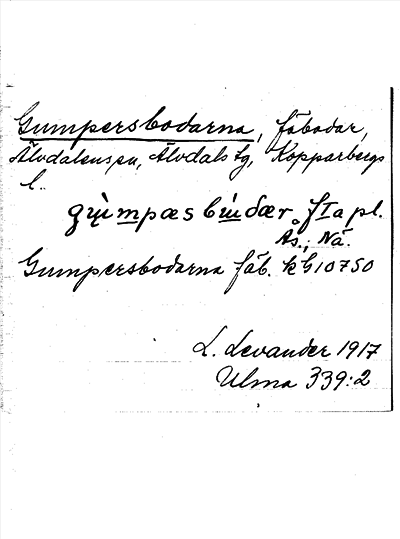 Gumpersbodarna, fäbodar,
Älvdalens sn, Älvdals tg, Kopparbergs
l.
gumpæs budær f Ia pl.
Ås., Nä.
Gumpersbodarna fäb. k G10750
L. Levander 1917
Ulma 339:2